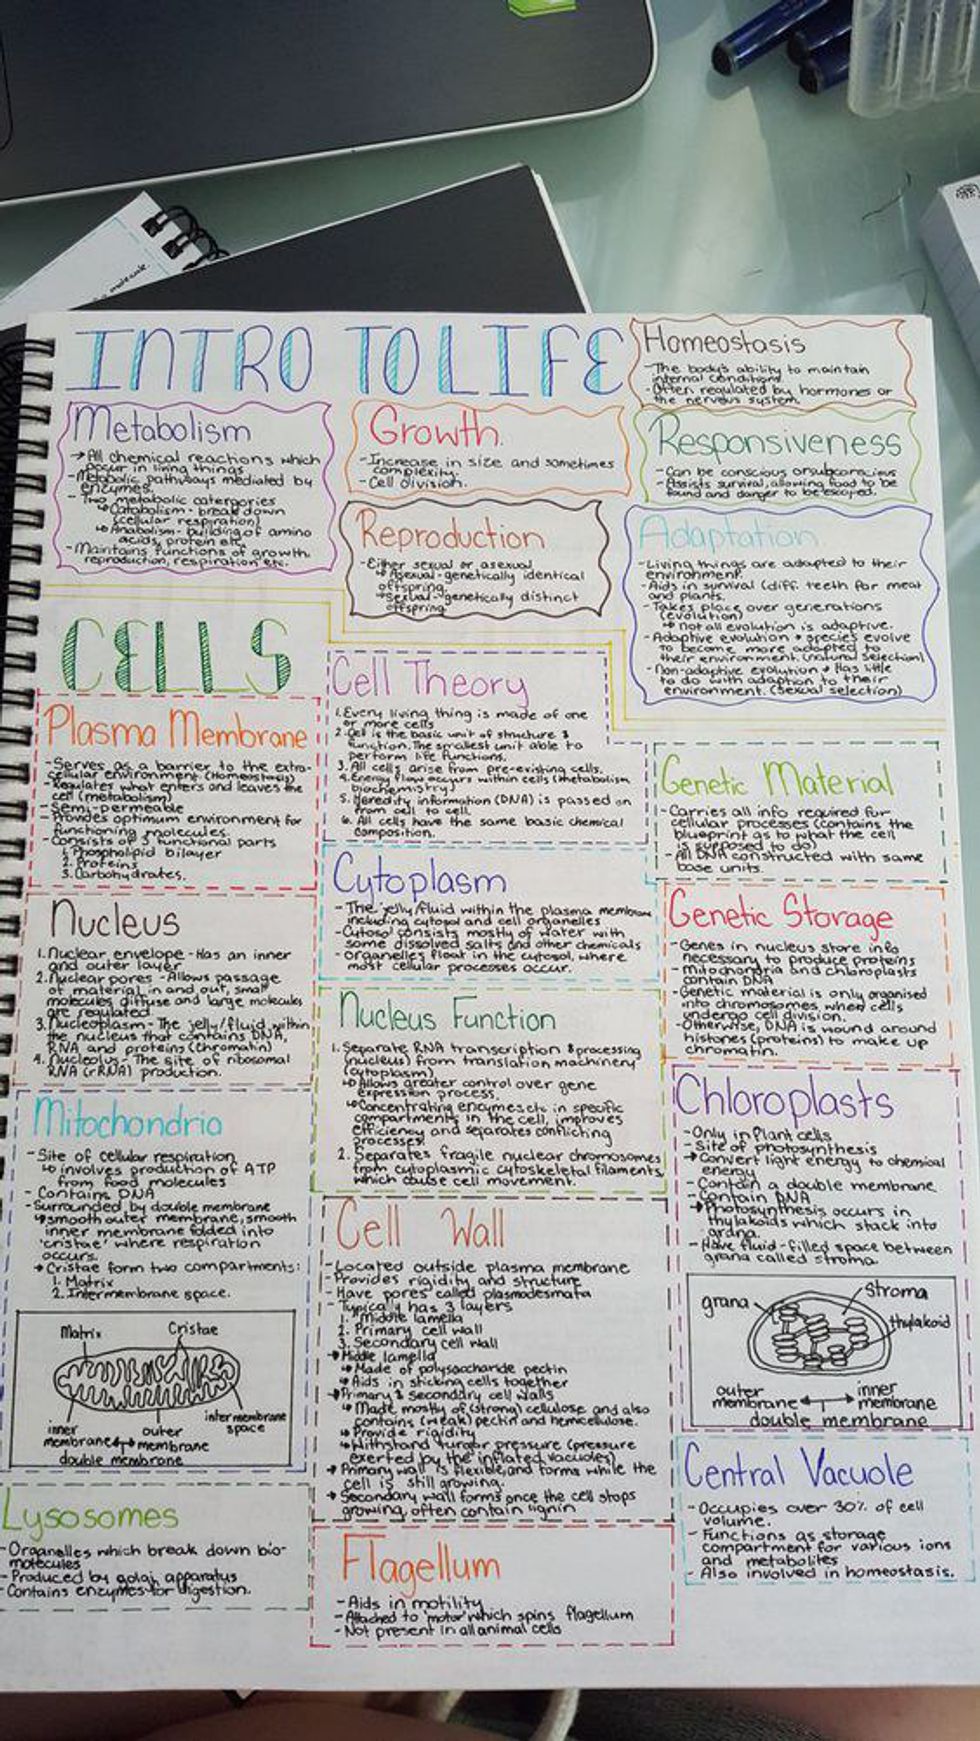 INTRO TO LIFE
Homeostasis
-The body's ability to maintain
internal conditions
-Often regulated by hormones or
the nervous system.
Metabolism
→All chemical reactions which
occur in living things
-Metabolic pathways mediated by
enzymes.
- Two metabolic catergories
↳Catabolism- break down
(cellular respiration)
↳Anabolism- building of amino
acids, protein etc.
-Maintains functions of growth
reproduction, respiration etc.
Growth.
-Increase in size and sometimes
complexity.
- Cell division.
Responsiveness
-Can be conscious or subconscious
-Assists survival, allowing food to be
found and danger to be escaped.
Reproduction
-Either sexual or asexual
↳Asexual-genetically identical
offspring.
↳Sexual-genetically distinct
offspring
Adaptation.
-Living things are adapted to their
environment.
-Aids in survival (diff. teeth for meat
and plants.
-Takes place over generations
(evolution)
↳ not all evolution is adaptive.
-Adaptive evolution → species evolve
to become more adapted to
their environment. (natural selection)
-Non-adaptive evolution → Has little
to do with adaption to their
environment. (Sexual selection)
CELLS
Plasma Membrane
-Serves as a barrier to the extra-
cellular environment (Homeostasis)
-Regulates what enters and leaves the
cell (metabolism)
-Semi-permeable
-Provides optimum environment for
functioning molecules.
-Consists of 3 functional parts
1. Phospholipid bilayer
2. Proteins
3. Carbohydrates.
Cell Theory
1. Every living thing is made of one
or more cells
2. Cell is the basic unit of structure &
function. The smallest unit able to
perform life functions.
3. All cells arise from pre-existing cells.
4. Energy flow occurs within cells (metabolism
biochemistry)
5. Heredity information (DNA) is passed on
from cell to cell.
6. All cells have the same basic chemical
composition.
Genetic Material
-Carries all info required for
cellular processes (contains the
blueprint as to what the cell
is supposed to do)
-All DNA constructed with same
base units.
Nucleus
1. Nuclear envelope-Has an inner
and outer layer
2. Nuclear pores -Allows passage
of material in and out, small
molecules diffuse and large molecules
are regulated.
3. Nucleoplasm-The jelly/fluid within
the nucleus that contains DNA,
RNA and proteins (chromatin)
4. Nucleolus- The site of ribosomal
RNA (rRNA) production.
Cytoplasm
-The jelly/fluid within the plasma membrane
including cytosol and cell organelles
-Cytosol consists mostly of water with
some dissolved salts and other chemicals
-organelles float in the cytosol, where
most cellular processes occur.
Genetic Storage
-Genes in nucleus store info
necessary to produce proteins
-mitochondria and chloroplasts
contain DNA
-Genetic material is only organised
into chromosomes when cells
undergo cell division.
-Otherwise, DNA is wound around
histones (proteins) to make up
chromatin.
Nucleus Function
1. Separate RNA transcription & processing
(nucleus) from translation machinery
(cytoplasm)
↳Allows greater control over gene
expression process.
↳Concentrating enzymes etc in specific
compartments in the cell, improves
efficiency and separates conflicting
processes.
2. Separates fragile nuclear chromosomes
from cytoplasmic cytoskeletal filaments,
which cause cell movement.
Mitochondria
-Site of cellular respiration
↳ involves production of ATP
from food molecules
- Contains DNA
-Surrounded by double membrane
↳smooth outer membrane, smooth
inner membrane folded into
'cristae' where respiration
occurs.
→ Cristae form two compartments:
1. Matrix
2. Intermembrane space.
Matrix
Cristae
inner
membrane
outer
membrane
intermembrane
space
double membrane
Chloroplasts
-Only in Plant cells
-Site of photosynthesis
→Convert light energy to chemical
energy
-Contain a double membrane
-Contain DNA
→Photosynthesis occurs in
thylakoids which stack into
grana.
-Have fluid-filled space between
grana called stroma.
grana
Stroma
thylakoid
outer
membrane
inner
membrane
double membrane
Cell Wall
-Located outside plasma membrane
-Provides rigidity and structure
-Have pores called plasmodesmata
-Typically has 3 layers
1. Middle lamella
2. Primary cell wall
3. Secondary cell wall
→Middle lamella
↳Made of polysaccharide pectin
↳Aids in sticking cells together
→Primary & secondary cell walls
↳ Made mostly of (strong) cellulose and also
contains (weak) pectin and hemicellulose.
↳ Provide rigidity
↳Withstand turgor pressure (pressure
exerted by the inflated vacuoles)
→ Primary wall is flexible, and forms while the
cell is still growing.
→ Secondary wall forms once the cell stops
growing, often contain lignin
Lysosomes
-Organelles which break down bio-
molecules
-Produced by golgi apparatus
-Contains enzymes for digestion.
Flagellum
-Aids in motility
-Attached to 'motor' which spins flagellum
-Not present in all animal cells
Central Vacuole
-Occupies over 30% of cell
volume.
- Functions as storage
compartment for various ions
and metabolites
- Also involved in homeostasis.